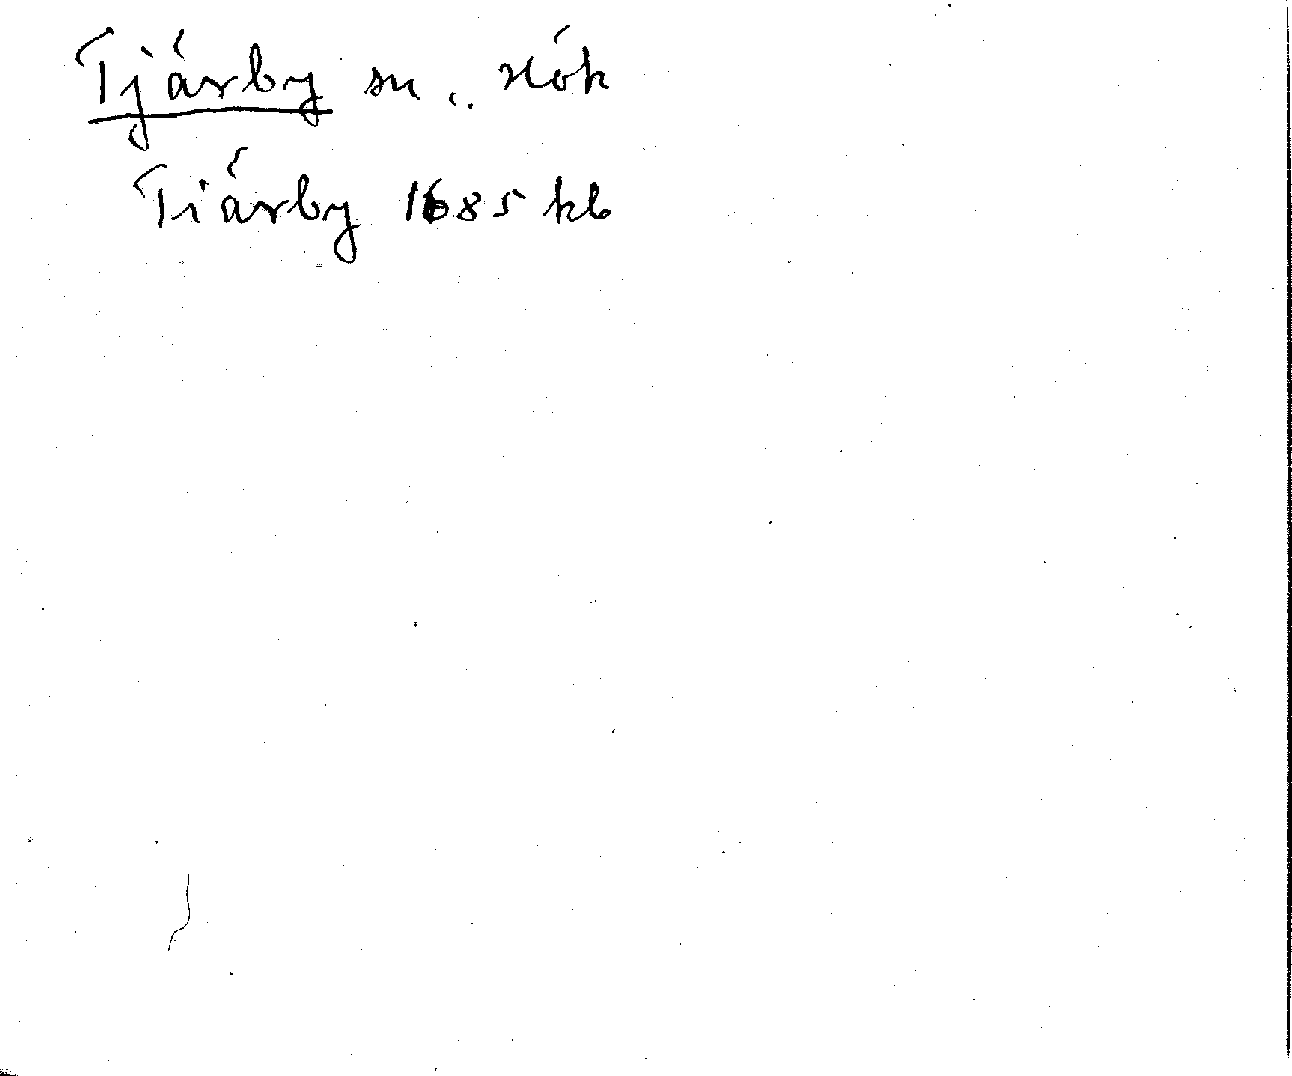 Tjärby sn. Hök
Tiärby 1685 kb